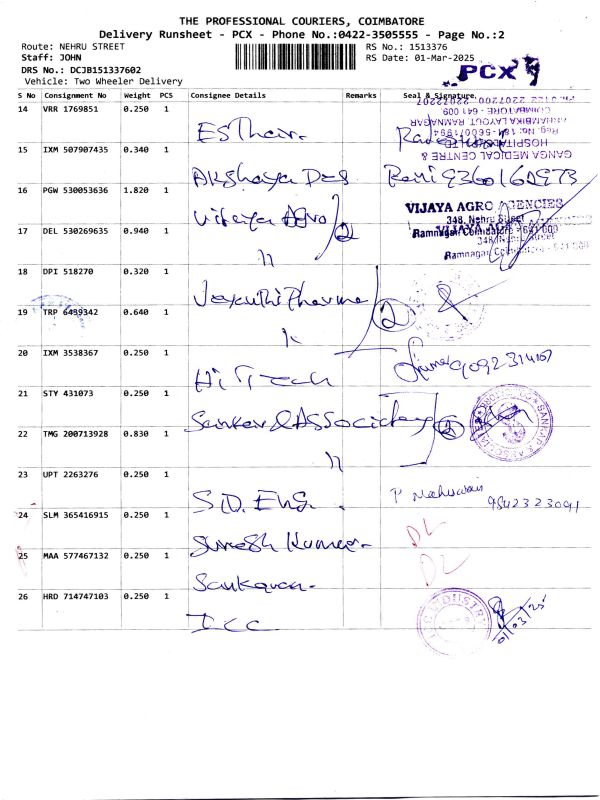 THE PROFESSIONAL COURIERS, COIMBATORE
Delivery Runsheet - PCX - Phone No.:0422-3505555 - Page No.:2
Route: NEHRU STREET
RS No.: 1513376
Staff: JOHN
RS Date: 01-Mar-2025
DRS No.: DCJB151337602
PCX
Vehicle: Two Wheeler Delivery
S No Consignment No Weight PCS Consignee Details Remarks Seal & Signature
14 VRR 1769851 0.250 1
GANGA MEDICAL CENTRE &
HOSPITALS
COIMBATORE - 641 009.
15 IXM 507907435 0.340 1 Akshaya Des Rani 9360160973
16 PGW 530053636 1.820 1 Vijaya Agro 2
VIJAYA AGRO AGENCIES
348, Nehru Street
Ramnagar Coimbatore - 641 009
17 DEL 530269635 0.940 1 "
18 DPI 518270 0.320 1 Pharma 2
19 TRP 6499342 0.640 1 "
20 IXM 3538367 0.250 1 Hi Tech
21 STY 431073 0.250 1 Sanker & Associates 2
SANKAR & ASSOCIATES
22 TMG 200713928 0.830 1 "
23 UPT 2263276 0.250 1 S.D. Eng. 9842323091
24 SLM 365416915 0.250 1 Suresh Kumar. DL
25 MAA 577467132 0.250 1 DL
26 HRD 714747103 0.250 1 ICC
01/03/25